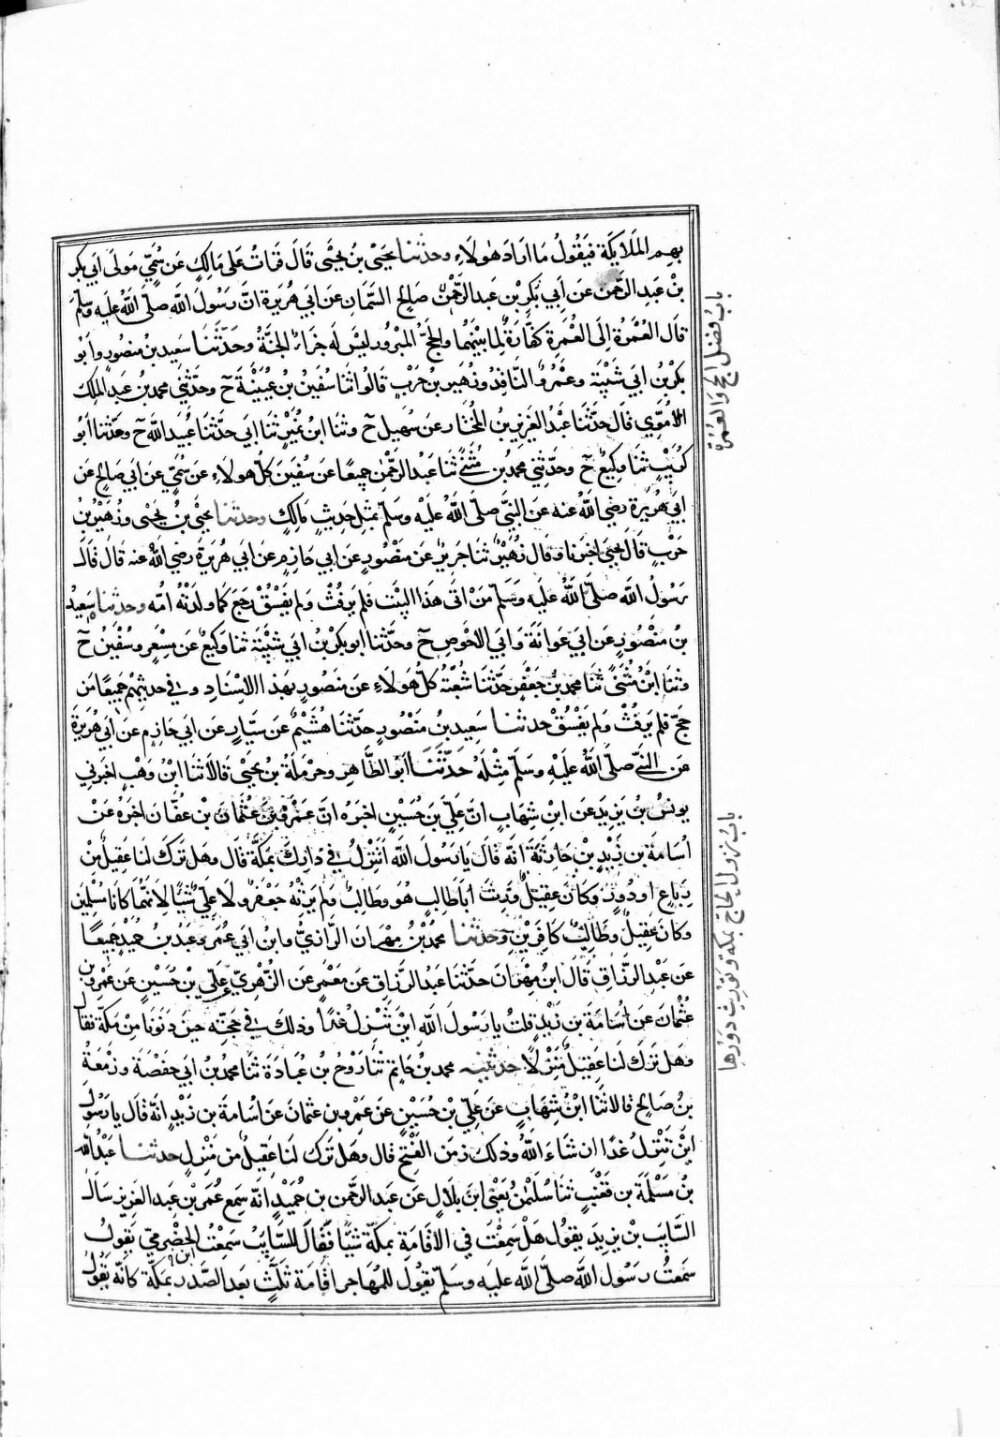 بهم الملايكة فيقول ما اراد هولاء وحدثنا يحيى بن يحيى قال قرات على مالك عن سمي مولى ابي بكر
بن عبد الرحمن عن ابي بكر بن عبد الرحمن صالح السمان عن ابي هريرة ان رسول الله صلى الله عليه وسلم
قال العمرة الى العمرة كفارة لما بينهما والحج المبرور ليس له جزاء الا الجنة وحدثنا سعيد بن منصور وابو
بكر بن ابي شيبة وعمرو الناقد وزهير بن حرب قالوا ثنا سفين بن عيينة ح وحدثني محمد بن عبد الملك
الاموي قال حدثنا عبد العزيز بن المختار عن سهيل ح وثنا ابن نمير ثنا ابي حدثنا عبيد الله ح وحدثنا ابو
كريب ثنا وكيع ح وحدثني محمد بن مثنى ثنا عبد الرحمن جميعا عن سفين كل هولاء عن سمي عن ابي صالح عن
ابي هريرة رضي الله عنه عن النبي صلى الله عليه وسلم بمثل حديث مالك وحدثنا يحيى بن يحيى وزهير بن
حرب قال يحيى اخبرنا وقال زهير ثنا جرير عن منصور عن ابي حازم عن ابي هريرة رضي الله عنه قال قال
رسول الله صلى الله عليه وسلم من اتى هذا البيت فلم يرفث ولم يفسق رجع كما ولدته امه وحدثنا سعيد
بن منصور عن ابي عوانة وابي الاحوص ح وحدثنا ابو بكر بن ابي شيبة ثنا وكيع عن مسعر وسفين ح
وثنا ابن مثنى ثنا محمد بن جعفر حدثنا شعبة كل هولاء عن منصور بهذا الاسناد وفي حديثهم جميعا من
حج فلم يرفث ولم يفسق حدثنا سعيد بن منصور حدثنا هشيم عن سيار عن ابي حازم عن ابي هريرة
عن النبي صلى الله عليه وسلم مثله حدثنا ابو الطاهر وحرملة بن يحيى قالا ثنا ابن وهب اخبرني
يونس بن يزيد عن ابن شهاب ان علي بن حسين اخبره ان عمرو بن عثمان بن عفان اخبره عن
اسامة بن زيد بن حارثة انه قال يا رسول الله اتنزل في دارك بمكة قال وهل ترك لنا عقيل من
رباع او دور وكان عقيل ورث ابا طالب هو وطالب ولم يرثه جعفر ولا علي شيئا لانهما كانا مسلمين
وكان عقيل وطالب كافرين وحدثنا محمد بن مهران الرازي وابن ابي عمر وعبد بن حميد جميعا
عن عبد الرزاق قال ابن مهران حدثنا عبد الرزاق عن معمر عن الزهري عن علي بن حسين عن عمرو بن
عثمان عن اسامة بن زيد قلت يا رسول الله اين تنزل غدا وذلك في حجته حين دنونا من مكة فقال
وهل ترك لنا عقيل منزلا حدثنيه محمد بن حاتم ثنا روح بن عبادة ثنا محمد بن ابي حفصة وزمعة
بن صالح قالا ثنا ابن شهاب عن علي بن حسين عن عمرو بن عثمان عن اسامة بن زيد انه قال يا رسول
اين تنزل غدا ان شاء الله وذلك زمن الفتح قال وهل ترك لنا عقيل من منزل حدثنا عبد الله
بن مسلمة بن قعنب ثنا سليمن يعني ابن بلال عن عبد الرحمن بن حميد انه سمع عمر بن عبد العزيز سال
السايب بن يزيد يقول هل سمعت في الاقامة بمكة شيئا فقال السايب سمعت ابن الحضرمي يقول
سمعت رسول الله صلى الله عليه وسلم يقول للمهاجر اقامة ثلث بعد الصدر بمكة كانه يقول
باب فضل الحج والعمرة
باب نزول الحاج بمكة وتوريث دورها